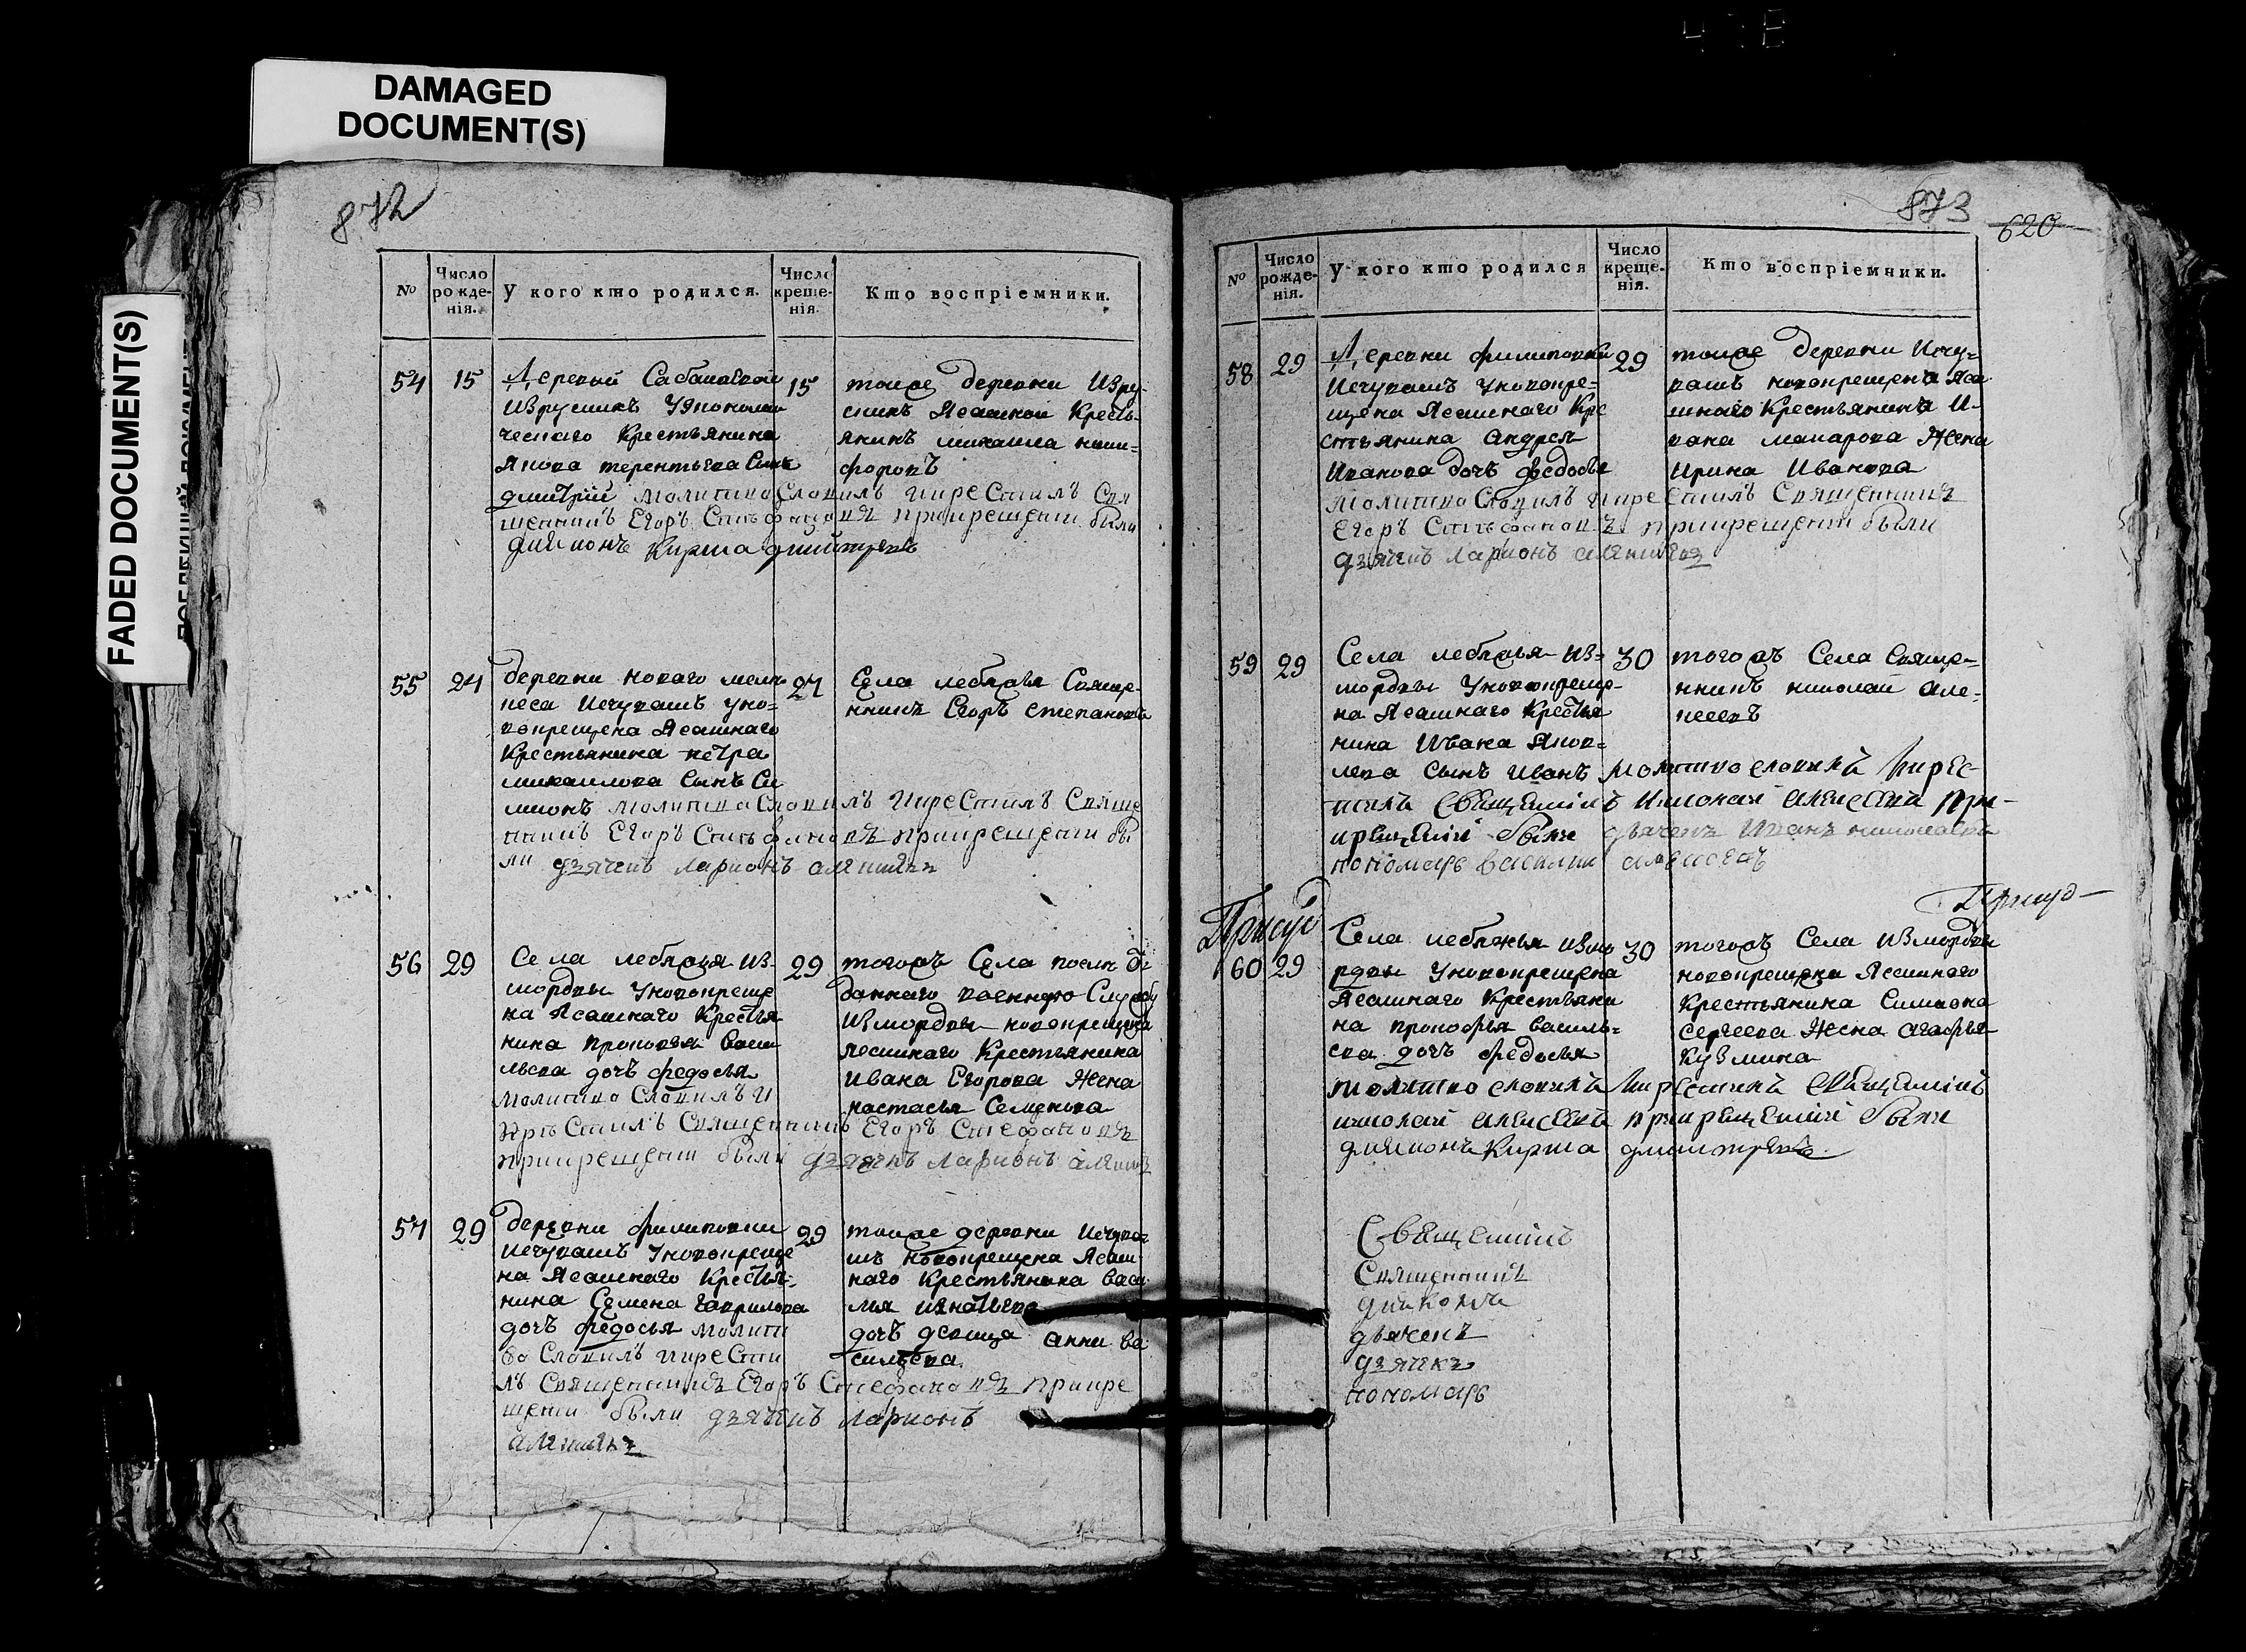 DAMAGED
DOCUMENT(S)
FADED DOCUMENT(S)
872
№
Число рожде-нія.
У кого кто родился.
Число креще-нія.
Кто воспріемники.
54 15
Деревни Сабанаевой
Изрусскихъ Уэкономи
ческаго Крестьянина
Якова терентьева Сынъ
дмитрій молитвославилъ икрестилъ Свя
щенникъ Егоръ Стефановъ прикрещеніи были
диаконъ Кирила дмитревъ
15
тоиже деревни Изру-
скихъ Ясашной Кресть-
янинъ михаила ники-
форовъ
55 24
деревни новаго мели
кеса Исчувашъ уно-
вокрещена Ясашнаго
Крестьянина петра
михаилова Сынъ Си
мионъ молитвославилъ икрестилъ Свяще
нникъ Егоръ Стефановъ прикрещеніи бы
ли дзячекъ ларионъ
27
Села лебяжья Свяще-
нникъ Егоръ степановъ
56 29
Села лебяжья Из-
мордвы Уновокреще
на Ясашнаго Крестья
нина прокофья васи
льева дочь федосья
молитво Славилъ И
крестилъ Священникъ Егоръ Стефановъ
прикрещеніи были дзячекъ ларионъ
29
тогожъ Села
даннаго военную Службу
Измордвы новокрещена
ясашнаго Крестьянина
Ивана Егорова Жена
настасья Семенова
57 29
деревни филиповки
Исчувашъ Уновокреще
на Ясашнаго Крестья-
нина Семена гаврилова
дочь федосья молит
во Славилъ икрести
лъ Священникъ Егоръ Стефановъ прикре
щеніи были дзячекъ ларионъ
29
тоиже деревни Исчува
шъ новокрещена Ясаш-
наго Крестьянина васи
лья игнатьева
дочь девица анна ва
сильева
873
620
№
Число рожде-нія.
У кого кто родился
Число креще-нія.
Кто воспріемники.
58 29
Деревни филиповки
Исчувашъ уновокре-
щена Ясашнаго Кре
стьянина андрея
Иванова дочь федосья
молитвославилъ икрестилъ Священникъ
Егоръ Стефановъ прикрещеніи были
дзячекъ ларионъ
29
тоиже деревни Исчу-
вашъ новокрещена Яса
шнаго Крестьянина И-
вана макарова Жена
Ирина Иванова
59 29
Села лебяжья Из-
мордвы Уновокреще-
на Ясашнаго Крестья
нина Ивана Яков-
лева сынъ Иванъ молитво славилъ Икрес-
тилъ Священикъ Николаи алексеевъ при-
крещеніи были дьячекъ Иванъ николаевъ
пономарь василии алексеевъ
30
тогожъ Села Свяще-
нникъ николаи але-
ксеевъ
60 29
Села лебяжья Измо
рдвы Уновокрещена
Ясашнаго Крестьяни
на прокофья василь-
ева дочь федосья
молитво славилъ Икрестилъ Священикъ
николаи алексеевъ прикрещеніи были
диаконъ Кирила дмитревъ
30
тогожъ Села Измордвы
новокрещена Ясашнаго
Крестьянина Симиона
сергеева Жена агафья
Кузмина
Священикъ
Священникъ
диаконъ
дьячекъ
дзячекъ
пономарь